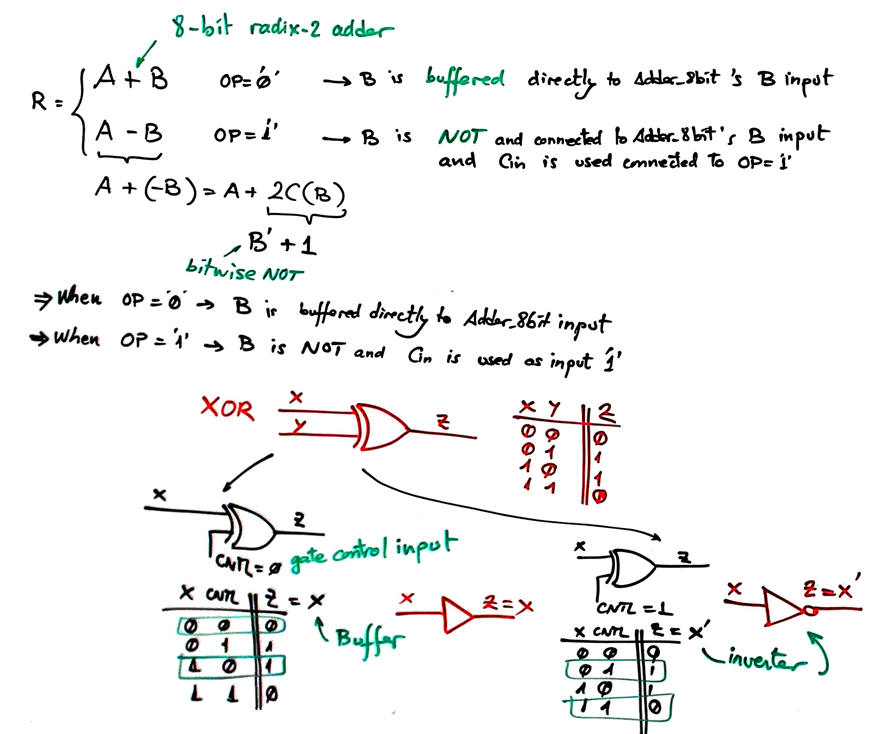 8-bit radix-2 adder
R = { A + B OP='0' → B is buffered directly to Adder_8bit's B input
A - B OP='1' → B is NOT and connected to Adder_8bit's B input
and Cin is used connected to OP='1'
A + (-B) = A + 2C(B)
B' + 1
bitwise NOT
⇒ When OP='0' → B is buffered directly to Adder_8bit input
⇒ When OP='1' → B is NOT and Cin is used as input '1'
XOR X Y Z
X Y Z
0 0 0
0 1 1
1 0 1
1 1 0
X Z
CNTL=0 gate control input
X CNTL Z = X
0 0 0
0 1 1
1 0 1
1 1 0
Buffer
X Z=X
X Z
CNTL=1
X CNTL Z = X'
0 0 0
0 1 1
1 0 1
1 1 0
inverter
X Z=X'